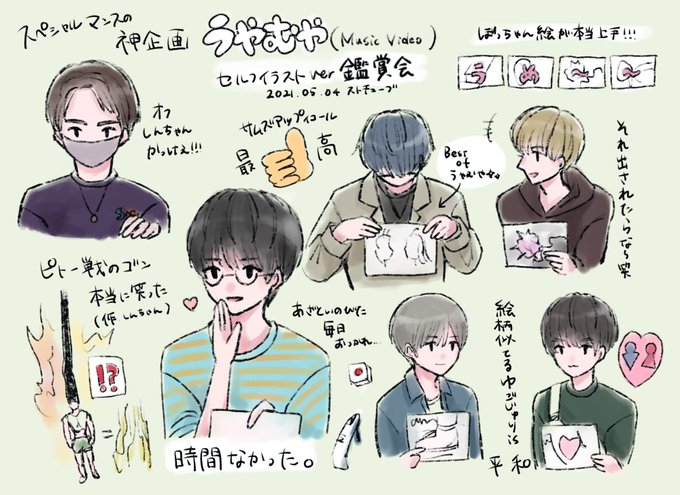 スペシャルマンスの
神企画 うやむや (Music Video)
セルフイラストver 鑑賞会
2021.05.04 ストチューブ
ぼっちゃん絵が本当上手!!!
う
め
オフ
しんちゃん
かっけぇ!!!
サムズアップイコール
最 高
Best
of
うやむや
それ出されたらなら笑
ピトー戦のゴン
本当に笑った
(作 しんちゃん)
!?
=
時間なかった。
あざといのびた
毎日
おつかれ...
絵柄似てるゆごじゅり is
平和